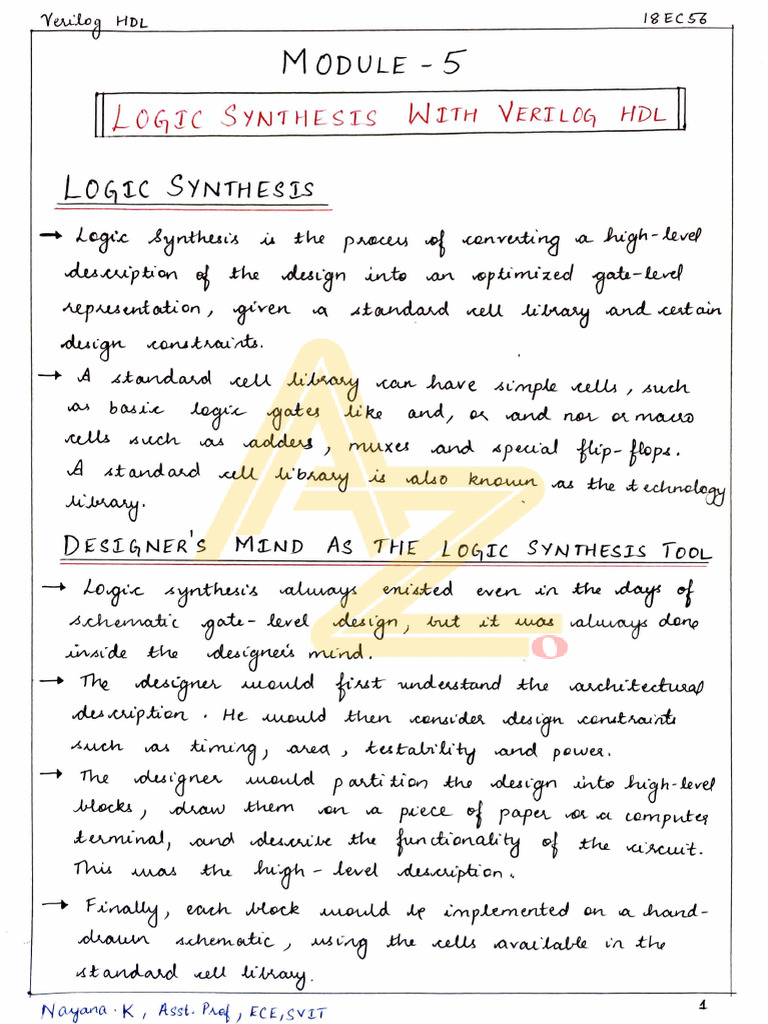 Verilog HDL 18EC56
MODULE - 5
LOGIC SYNTHESIS WITH VERILOG HDL
LOGIC SYNTHESIS
→ Logic Synthesis is the process of converting a high-level
description of the design into an optimized gate-level
representation, given a standard cell library and certain
design constraints.
→ A standard cell library can have simple cells, such
as basic logic gates like and, or and nor or macro
cells such as adders, muxes and special flip-flops.
A standard cell library is also known as the technology
library.
DESIGNER'S MIND AS THE LOGIC SYNTHESIS TOOL
→ Logic synthesis always existed even in the days of
schematic gate-level design, but it was always done
inside the designer's mind.
→ The designer would first understand the architectural
description. He would then consider design constraints
such as timing, area, testability and power.
→ The designer would partition the design into high-level
blocks, draw them on a piece of paper or a computer
terminal, and describe the functionality of the circuit.
This was the high-level description.
→ Finally, each block would be implemented on a hand-
drawn schematic, using the cells available in the
standard cell library.
Nayana.K, Asst. Prof, ECE, SVIT 1
AZ
O